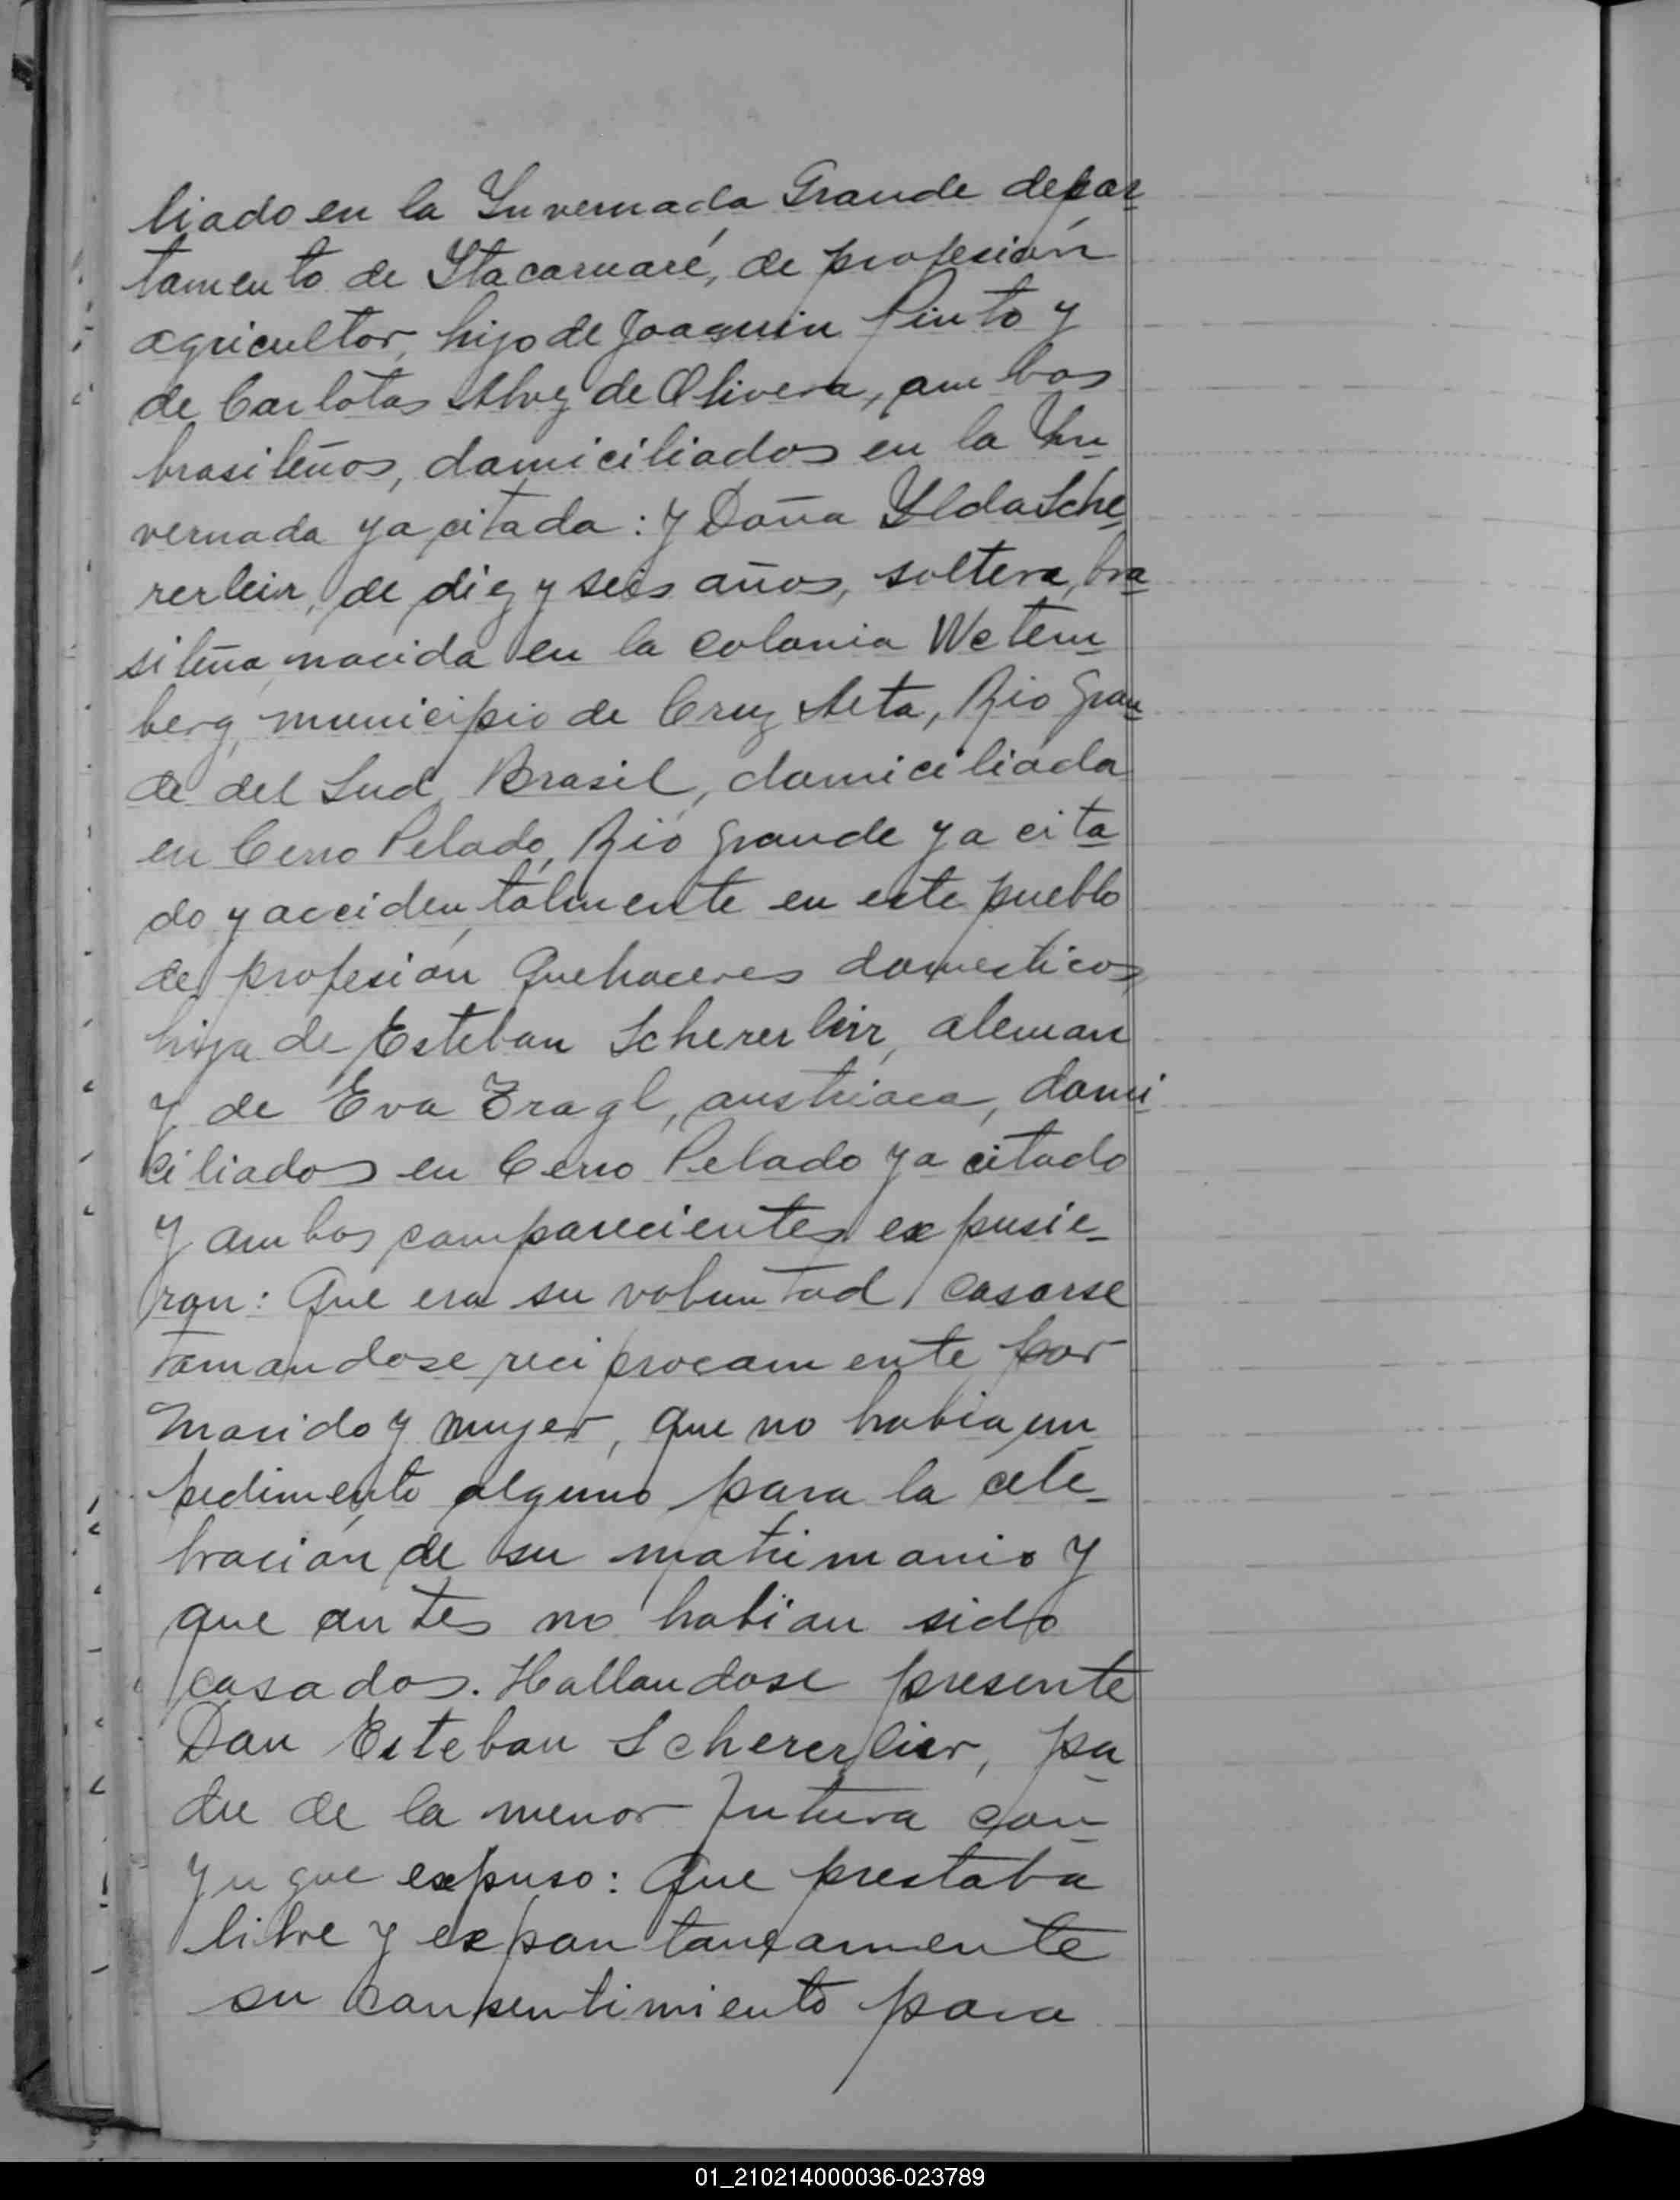 liado en la Invernada Grande depar-
tamento de Itacaruaré, de profesión
agricultor, hijo de Joaquin Pinto y
de Carlotas Alvez de Olivera, ambos
brasileños, domiciliados en la In-
vernada ya citada: y Doña Ylda Sche-
rerleir, de diez y seis años, soltera, bra-
sileña, nacida en la colonia Wetem-
berg, municipio de Cruz Alta, Rio Gran-
de del Sud, Brasil, domiciliada
en Cerro Pelado, Rio Grande ya cita-
do y accidentalmente en este pueblo
de profesión Quehaceres domesticos,
hija de Esteban Schererleir, aleman
y de Eva Tragl, austriaca, domi-
ciliados en Cerro Pelado ya citado
y ambos comparecientes expusie-
ron: Que era su voluntad casarse
tomandose reciprocamente por
Marido y mujer, que no habia im-
pedimento alguno para la cele-
bración de su matrimonio y
que antes no habian sido
casados. Hallandose presente
Don Esteban Schererlier, pa-
dre de la menor futura con-
yugue expuso: Que prestaba
libre y expontaneamente
su consentimiento para
01_210214000036-023789